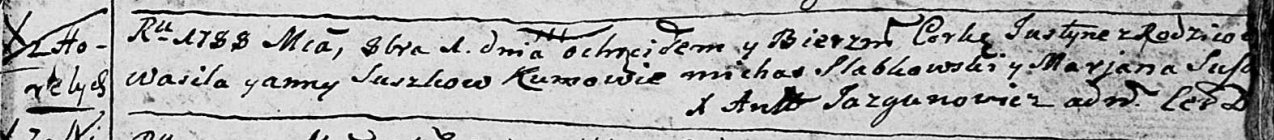 z Ho-
relych
Ru 1788 Mca, 8bra 1. dnia ochrciłem y Bierzm. Corkę Justynę z Rodzicow
Wasila y anny Suszkow Kumowie michas Słabkowski y Marjana Sus
X Ant Jazgunowicz adm.